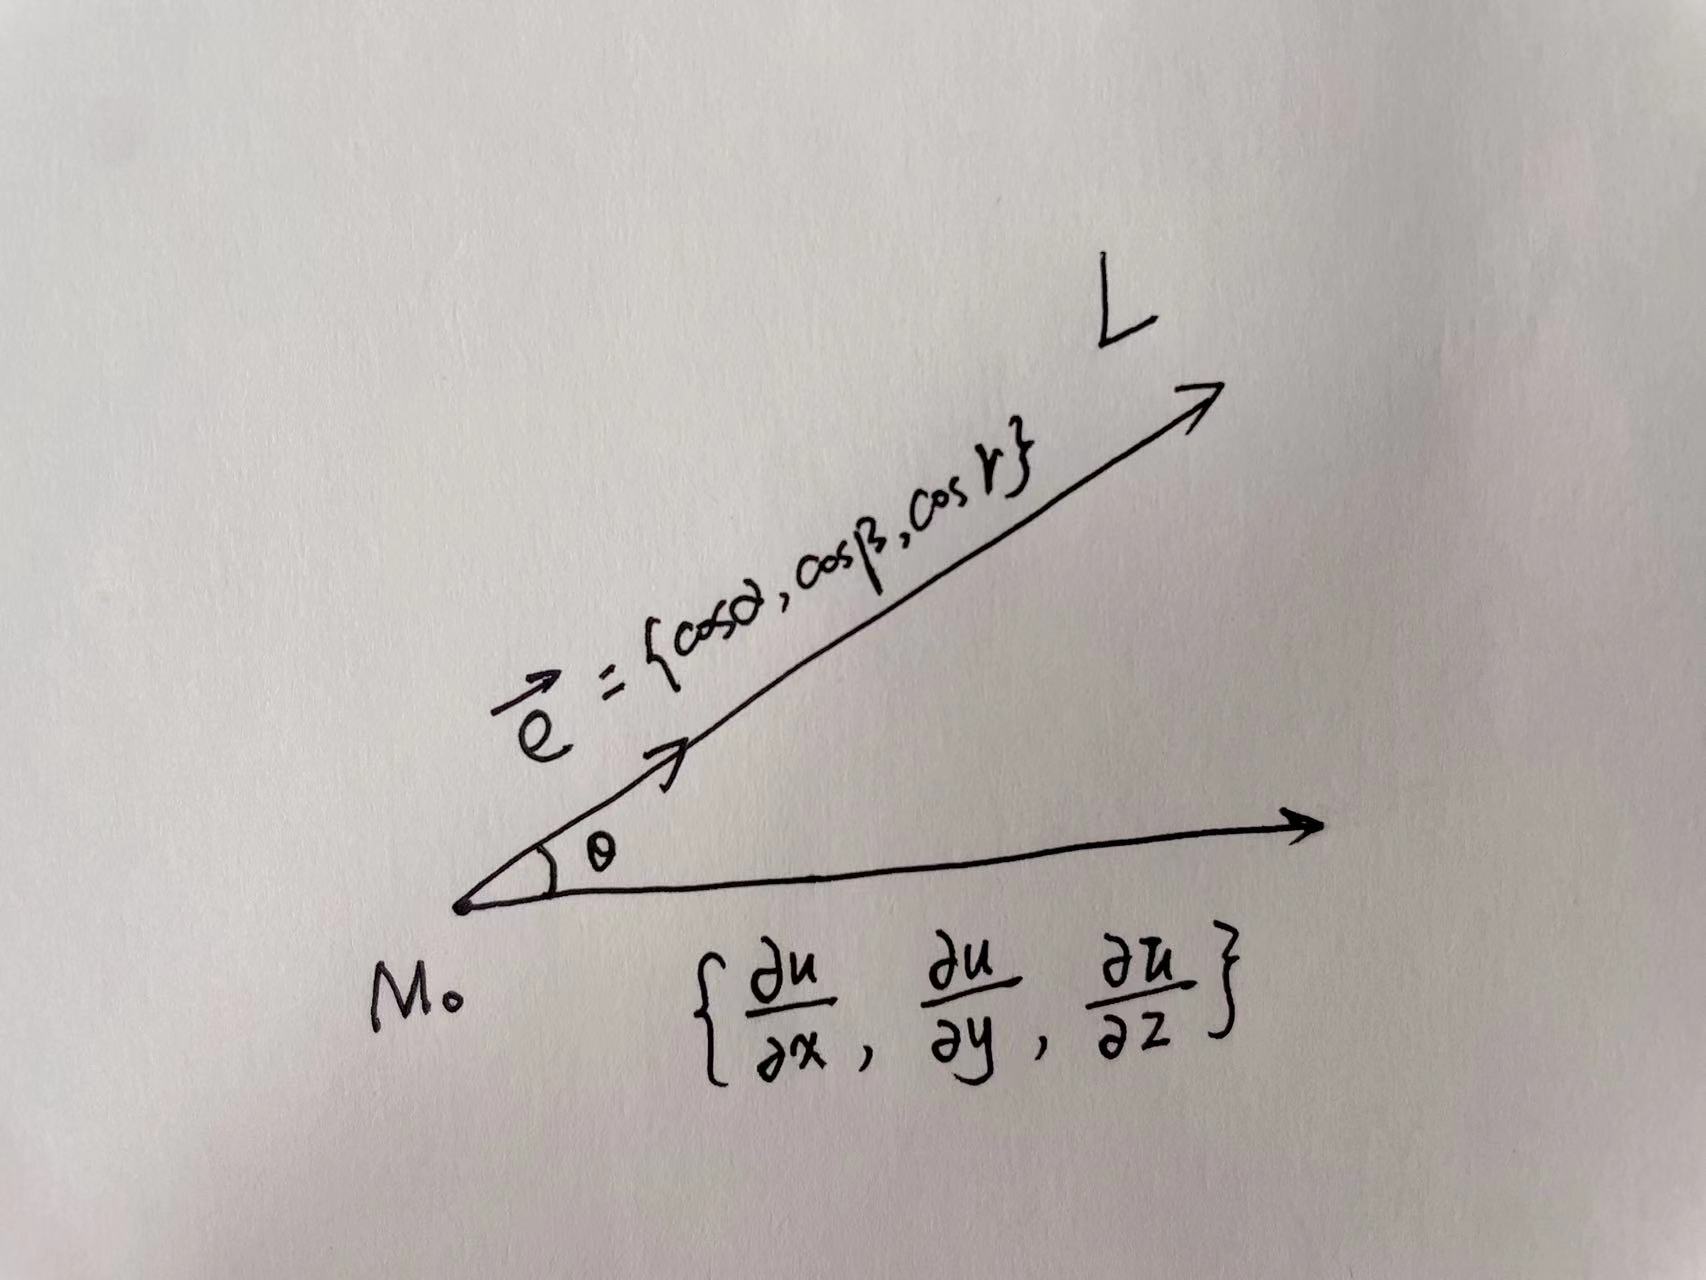 L
→e = {cosα, cosβ, cosγ}
θ
M₀
{∂u/∂x, ∂u/∂y, ∂u/∂z}